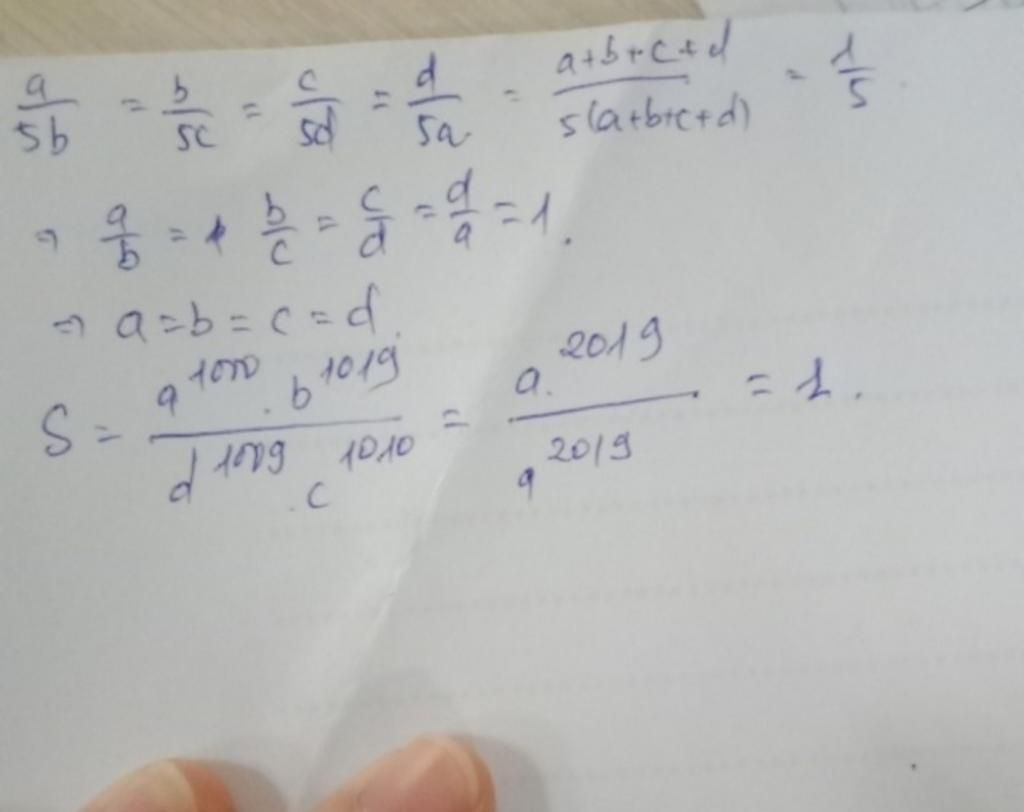 a/5b = b/5c = c/5d = d/5a = a+b+c+d/5(a+b+c+d) = 1/5.
⇒ a/b = b/c = c/d = d/a = 1.
⇒ a=b=c=d.
S = a^1000 . b^1019 / d^1009 . c^1010 = a.^2019 / a^2019 = 1.